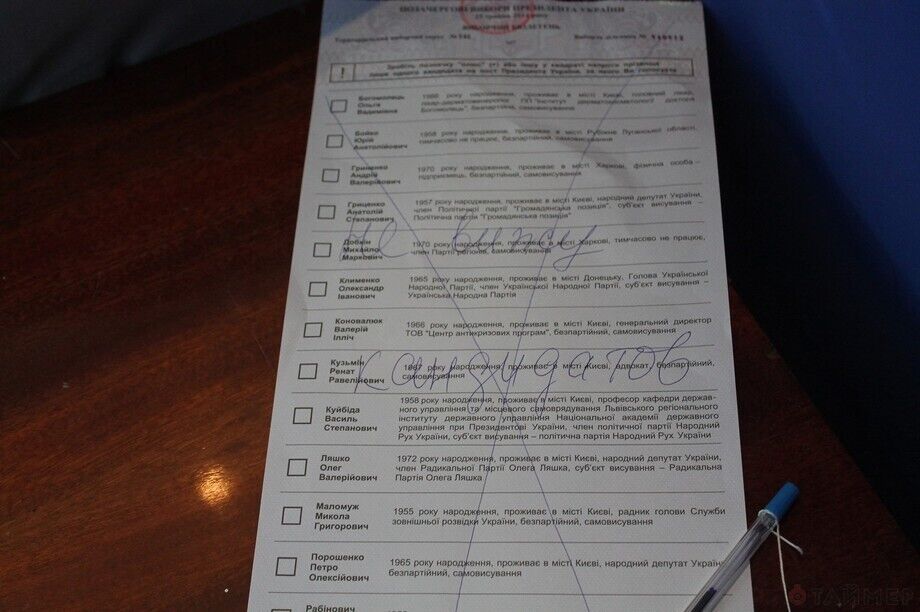 ПОЗАЧЕРГОВІ ВИБОРИ ПРЕЗИДЕНТА УКРАЇНИ
25 травня 2014 року
ВИБОРЧИЙ БЮЛЕТЕНЬ
Територіальний виборчий округ № Виборча дільниця №
! Зробіть позначку "плюс" (+) або іншу у квадраті напроти прізвища
лише одного кандидата на пост Президента України, за якого Ви голосуєте
Богомолець
Ольга
Вадимівна
1966 року народження, проживає в місті Києві, головний лікар,
лікар-дерматовенеролог ПП "Інститут дерматокосметології доктора
Богомолець", безпартійна, самовисування
Бойко
Юрій
Анатолійович
1958 року народження, проживає в місті Рубіжне Луганської області,
тимчасово не працює, безпартійний, самовисування
Гриненко
Андрій
Валерійович
1970 року народження, проживає в місті Харкові, фізична особа –
підприємець, безпартійний, самовисування
Гриценко
Анатолій
Степанович
1957 року народження, проживає в місті Києві, народний депутат України,
член Політичної партії "Громадянська позиція", суб'єкт висування –
Політична партія "Громадянська позиція"
не вижу
Добкін
Михайло
Маркович
1970 року народження, проживає в місті Харкові, тимчасово не працює,
член Партії регіонів, самовисування
Клименко
Олександр
Іванович
1965 року народження, проживає в місті Донецьку, Голова Української
Народної Партії, член Української Народної Партії, суб'єкт висування –
Українська Народна Партія
Коновалюк
Валерій
Ілліч
1966 року народження, проживає в місті Києві, генеральний директор
ТОВ "Центр антикризових програм", безпартійний, самовисування
кандидатов
Кузьмін
Ренат
Равелійович
1967 року народження, проживає в місті Києві, адвокат, безпартійний,
самовисування
Куйбіда
Василь
Степанович
1958 року народження, проживає в місті Києві, професор кафедри держав-
ного управління та місцевого самоврядування Львівського регіонального
інституту державного управління Національної академії державного
управління при Президентові України, член політичної партії Народний
Рух України, суб'єкт висування – політична партія Народний Рух України
Ляшко
Олег
Валерійович
1972 року народження, проживає в місті Києві, народний депутат України,
член Радикальної Партії Олега Ляшка, суб'єкт висування – Радикальна
Партія Олега Ляшка
Маломуж
Микола
Григорович
1955 року народження, проживає в місті Києві, радник голови Служби
зовнішньої розвідки України, безпартійний, самовисування
Порошенко
Петро
Олексійович
1965 року народження, проживає в місті Києві, народний депутат Україн
безпартійний, самовисування
Рабінович
ТАЙМЕР